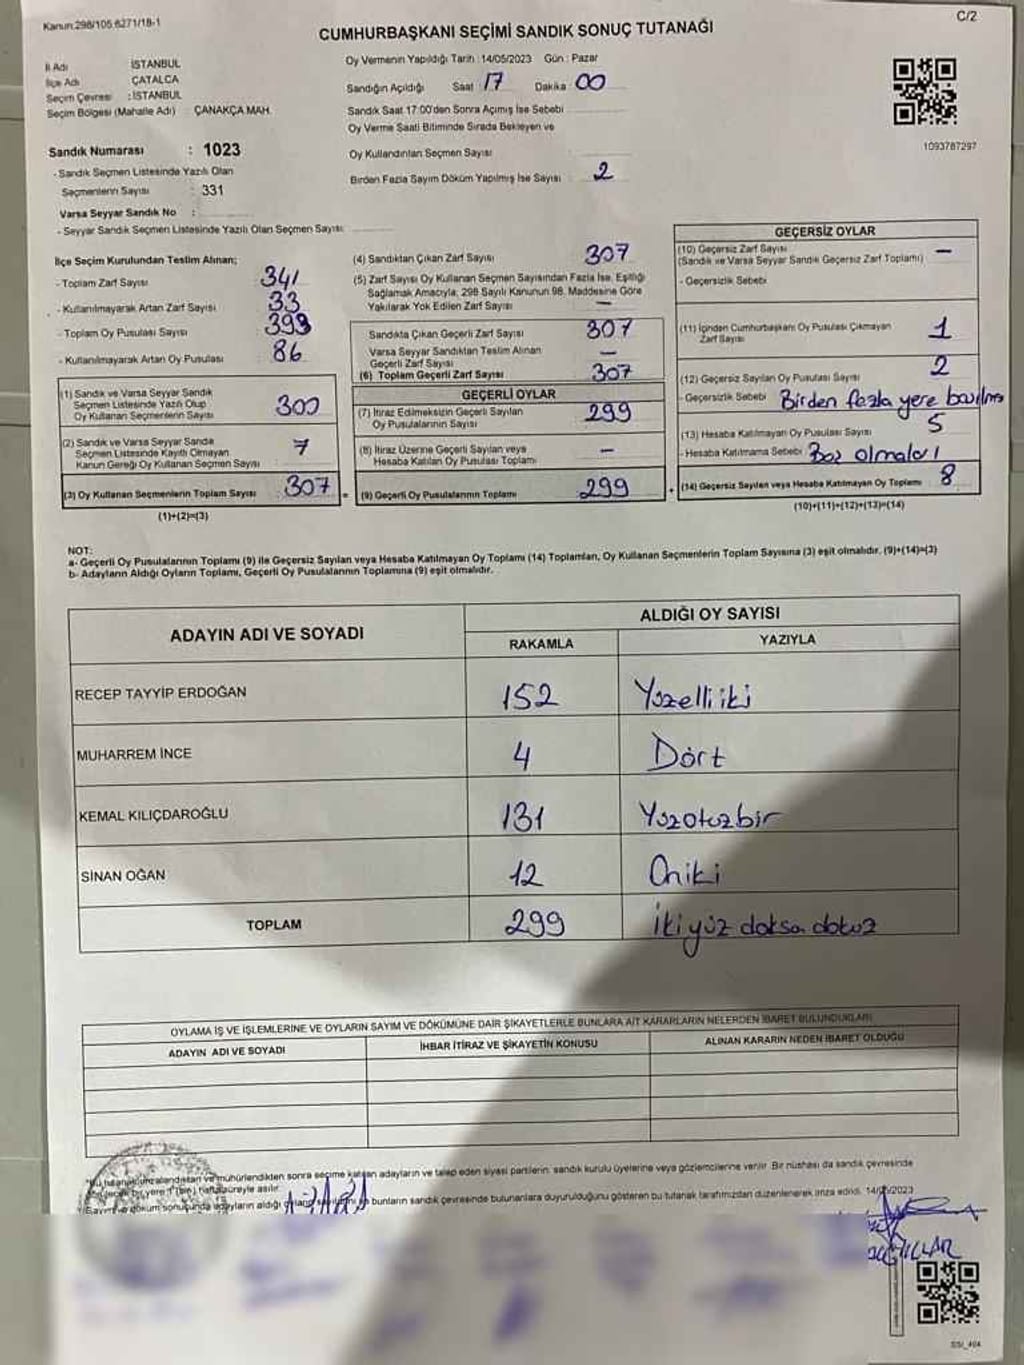 Kanun:298/105.6271/18-1
C/2
CUMHURBAŞKANI SEÇİMİ SANDIK SONUÇ TUTANAĞI
İl Adı : İSTANBUL
İlçe Adı : ÇATALCA
Seçim Çevresi : İSTANBUL
Seçim Bölgesi (Mahalle Adı) : ÇANAKÇA MAH.
Sandık Numarası : 1023
- Sandık Seçmen Listesinde Yazılı Olan
Seçmenlerin Sayısı : 331
Varsa Seyyar Sandık No :
- Seyyar Sandık Seçmen Listesinde Yazılı Olan Seçmen Sayısı:
Oy Vermenin Yapıldığı Tarih : 14/05/2023 Gün : Pazar
Sandığın Açıldığı Saat 17 Dakika 00
Sandık Saat 17:00'den Sonra Açımış İse Sebebi
Oy Verme Saati Bitiminde Sırada Bekleyen ve
Oy Kullandırılan Seçmen Sayısı
Birden Fazla Sayım Döküm Yapılmış İse Sayısı : 2
1093787297
İlçe Seçim Kurulundan Teslim Alınan;
- Toplam Zarf Sayısı : 341
- Kullanılmayarak Artan Zarf Sayısı : 33
- Toplam Oy Pusulası Sayısı : 393
- Kullanılmayarak Artan Oy Pusulası : 86
(1) Sandık ve Varsa Seyyar Sandık
Seçmen Listesinde Yazılı Olup
Oy Kullanan Seçmenlerin Sayısı : 300
(2) Sandık ve Varsa Seyyar Sandık
Seçmen Listesinde Kayıtlı Olmayan
Kanun Gereği Oy Kullanan Seçmen Sayısı : 7
(3) Oy Kullanan Seçmenlerin Toplam Sayısı : 307 =
(1)+(2)=(3)
(4) Sandıktan Çıkan Zarf Sayısı : 307
(5) Zarf Sayısı Oy Kullanan Seçmen Sayısından Fazla İse, Eşitliği
Sağlamak Amacıyla, 298 Sayılı Kanunun 98. Maddesine Göre
Yakılarak Yok Edilen Zarf Sayısı : —
Sandıkta Çıkan Geçerli Zarf Sayısı : 307
Varsa Seyyar Sandıktan Teslim Alınan
Geçerli Zarf Sayısı : —
(6) Toplam Geçerli Zarf Sayısı : 307
GEÇERLİ OYLAR
(7) İtiraz Edilmeksizin Geçerli Sayılan
Oy Pusulalarının Sayısı : 299
(8) İtiraz Üzerine Geçerli Sayılan veya
Hesaba Katılan Oy Pusulası Toplamı : —
(9) Geçerli Oy Pusulalarının Toplamı : 299 +
GEÇERSİZ OYLAR
(10) Geçersiz Zarf Sayısı
(Sandık ve Varsa Seyyar Sandık Geçersiz Zarf Toplamı) : —
- Geçersizlik Sebebi :
(11) İçinden Cumhurbaşkanı Oy Pusulası Çıkmayan
Zarf Sayısı : 1
(12) Geçersiz Sayılan Oy Pusulası Sayısı : 2
- Geçersizlik Sebebi : Birden fazla yere basılmış
(13) Hesaba Katılmayan Oy Pusulası Sayısı : 5
- Hesaba Katılmama Sebebi : Boş olmaları
(14) Geçersiz Sayılan veya Hesaba Katılmayan Oy Toplamı : 8
(10)+(11)+(12)+(13)=(14)
NOT:
a- Geçerli Oy Pusulalarının Toplamı (9) ile Geçersiz Sayılan veya Hesaba Katılmayan Oy Toplamı (14) Toplamları, Oy Kullanan Seçmenlerin Toplam Sayısına (3) eşit olmalıdır. (9)+(14)=(3)
b- Adayların Aldığı Oyların Toplamı, Geçerli Oy Pusulalarının Toplamına (9) eşit olmalıdır.
ADAYIN ADI VE SOYADI
ALDIĞI OY SAYISI
RAKAMLA YAZIYLA
RECEP TAYYİP ERDOĞAN 152 Yüzelliiki
MUHARREM İNCE 4 Dört
KEMAL KILIÇDAROĞLU 131 Yüzotuzbir
SİNAN OĞAN 12 Oniki
TOPLAM 299 İkiyüz doksa dokuz
OYLAMA İŞ VE İŞLEMLERİNE VE OYLARIN SAYIM VE DÖKÜMÜNE DAİR ŞİKAYETLERLE BUNLARA AİT KARARLARIN NELERDEN İBARET BULUNDUKLARI
ADAYIN ADI VE SOYADI İHBAR İTİRAZ VE ŞİKAYETİN KONUSU ALINAN KARARIN NEDEN İBARET OLDUĞU
mühürlendikten sonra seçime katılan adayların ve talep eden siyasi partilerin, sandık kurulu üyelerine veya gözlemcilerine verilir. Bir nüshası da sandık çevresinde
bir yere 1 (bir) hafta süreyle asılır.
Sayım ve döküm sonucunda adayların aldığı bunların sandık çevresinde bulunanlara duyurulduğunu gösteren bu tutanak tarafımızdan düzenlenerek imza edildi. 14/05/2023